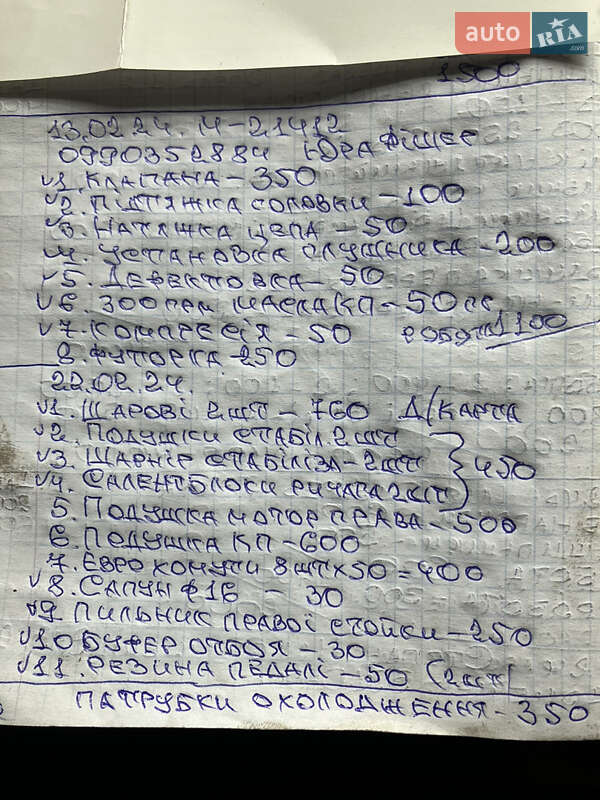 auto RIA .com
1500
13.02.24. М-21412
0990352884 ЮРА ФІШЕР
√1. КЛАПАНА - 350
√2. ПІДТЯЖКА ГОЛОВКИ - 100
√3. НАТЯЖКА ЦЕПА - 50
4. УСТАНОВКА ГЛУШНИКА - 200
√5. ДЕФЕКТОВКА - 50
√6. 300 грм МАСЛА КП - 50
√7. КОМПРЕСІЯ - 50 РОБОТА 1100
8. ФУТОРКА - 250
22.02.24.
√1. ШАРОВІ 2ШТ - 760 Д/КАРТА
√2. ПОДУШКИ СТАБІЛ. 2ШТ
√3. ШАРНІР СТАБІЛІЗА - 2ШТ } 450
√4. САЛЕНТБЛОКИ РИЧАГА 2ШТ
5. ПОДУШКА МОТОР ПРАВА - 500
6. ПОДУШКА КП - 600
7. ЕВРО ХОМУТИ 8ШТ×50=400
√8. САПУН Ф16 - 30
√9. ПИЛЬНИК ПРАВОЇ СТОЙКИ - 250
√10 БУФЕР ОТБОЯ - 30
√11. РЕЗИНА ПЕДАЛІ - 50 (2ШТ)
ПАТРУБКИ ОХОЛОДЖЕННЯ - 350